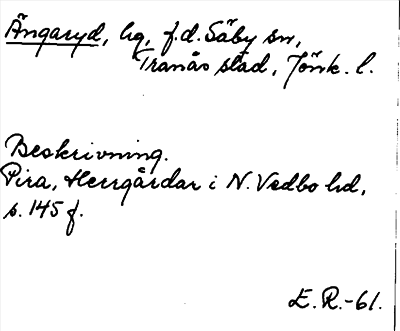 Ängaryd, hg, f.d. Säby sn,
Tranås stad, Jönk. l.
Beskrivning.
Pira, Herrgårdar i N. Vedbo hd,
s. 145 f.
E. R. -61.